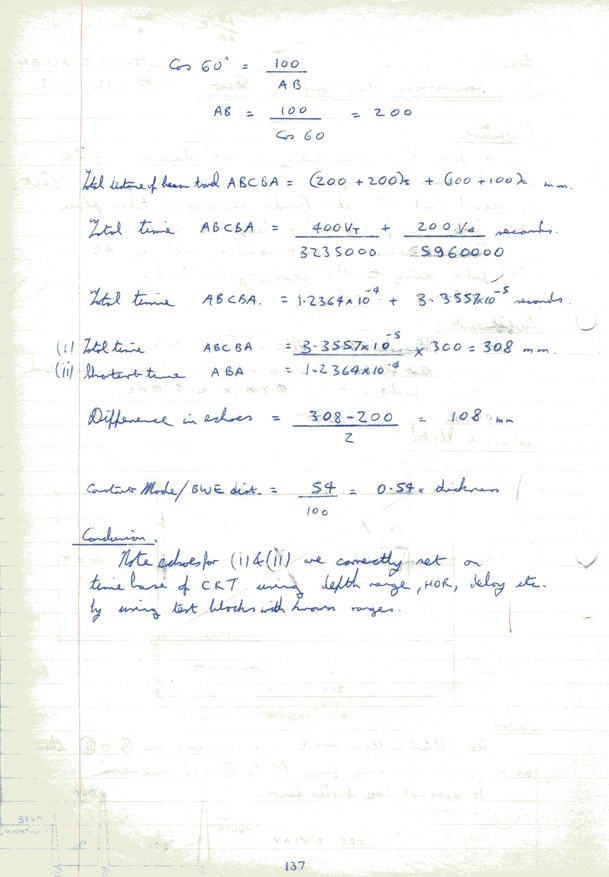 Cos 60° = 100 / AB
AB = 100 / Cos 60 = 200
Total distance of beam travel ABCBA = (200 + 200)s + (100 + 100)c mm.
Total time ABCBA = 400 VT / 3235000 + 200 Vc / 5960000 seconds.
Total time ABCBA. = 1.2364 x 10⁻⁴ + 3.3557x10⁻⁵ seconds.
(i) Total time ABCBA = 3.3557x10⁻⁵ x 300 = 308 mm.
(ii) Shortest time ABA = 1.2364x10⁻⁴
Difference in echoes = 308-200 / 2 = 108 mm
Mode/BWE dist. = 54 / 100 = 0.54 x thickness
Conclusion.
Note echoes for (i) & (ii) are correctly set on
time base of CRT using depth range, HOR, delay etc.
by using test blocks with known ranges.
137